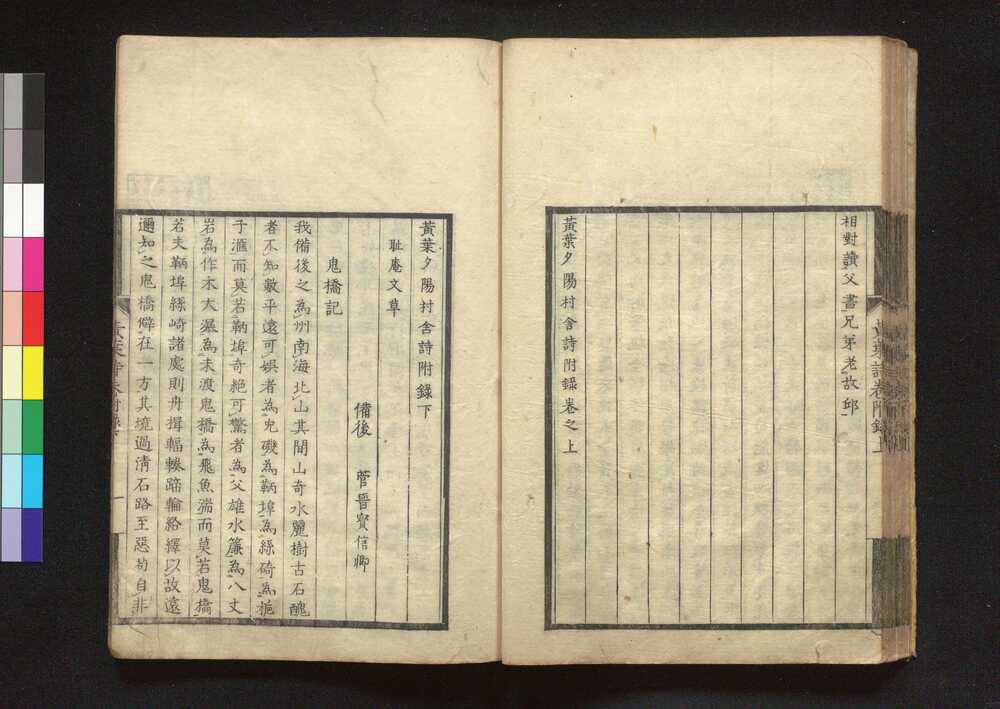 相對讀父書兄弟老故邱
黃葉夕陽村舍詩附錄卷之上
黃葉夕陽村舍詩附錄下
恥庵文草
備後 菅晉寶信卿
鬼橋記
我備後之為州南海北山其間山奇水麗樹古石醜
者不知數平遠可娛者為皃礒為鞆埠為絲碕為梔
子滙而莫若鞆埠奇絕可驚者為父雄水簾為八丈
岩為作木大瀑為未渡鬼橋為飛魚湍而莫若鬼橋
若夫鞆埠絲崎諸處則舟揖輻輳蹄輪絡繹以故遠
邇知之鬼橋僻在一方其境過清石路至惡苟自非